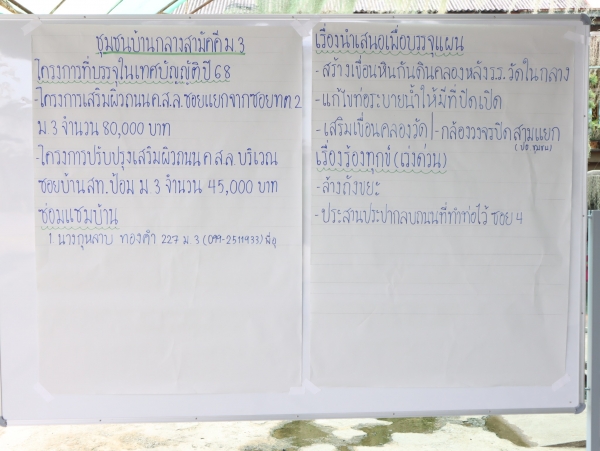 ชุมชนบ้านกลางสามัคคี ม 3
โครงการที่บรรจุในเทศบัญญัติปี 68
-โครงการเสริมผิวถนน ค.ส.ล.ซอยแยกจากซอยทศ 2
ม 3 จำนวน 80,000 บาท
-โครงการปรับปรุงเสริมผิวถนน ค ส ล บริเวณ
ซอยบ้านสท.ป้อม ม 3 จำนวน 45,000 บาท
ซ่อมแซมบ้าน
1 นางกุหลาบ ทองคำ 227 ม.3 (099-2511933)
เรื่องนำเสนอเพื่อบรรจุแผน
-สร้างเขื่อนหินกันดินคลองหลังร.ร.วัดในกลาง
-แก้ไขท่อระบายน้ำให้มีที่ปิดเปิด
-เสริมเขื่อนคลองวัด/-กล้องวงจรปิดสามแยก
เรื่องร้องทุกข์ (เร่งด่วน)
-ล้างถังขยะ
-ประสานประปากลบถนนที่ทำท่อไว้ ซอย 4